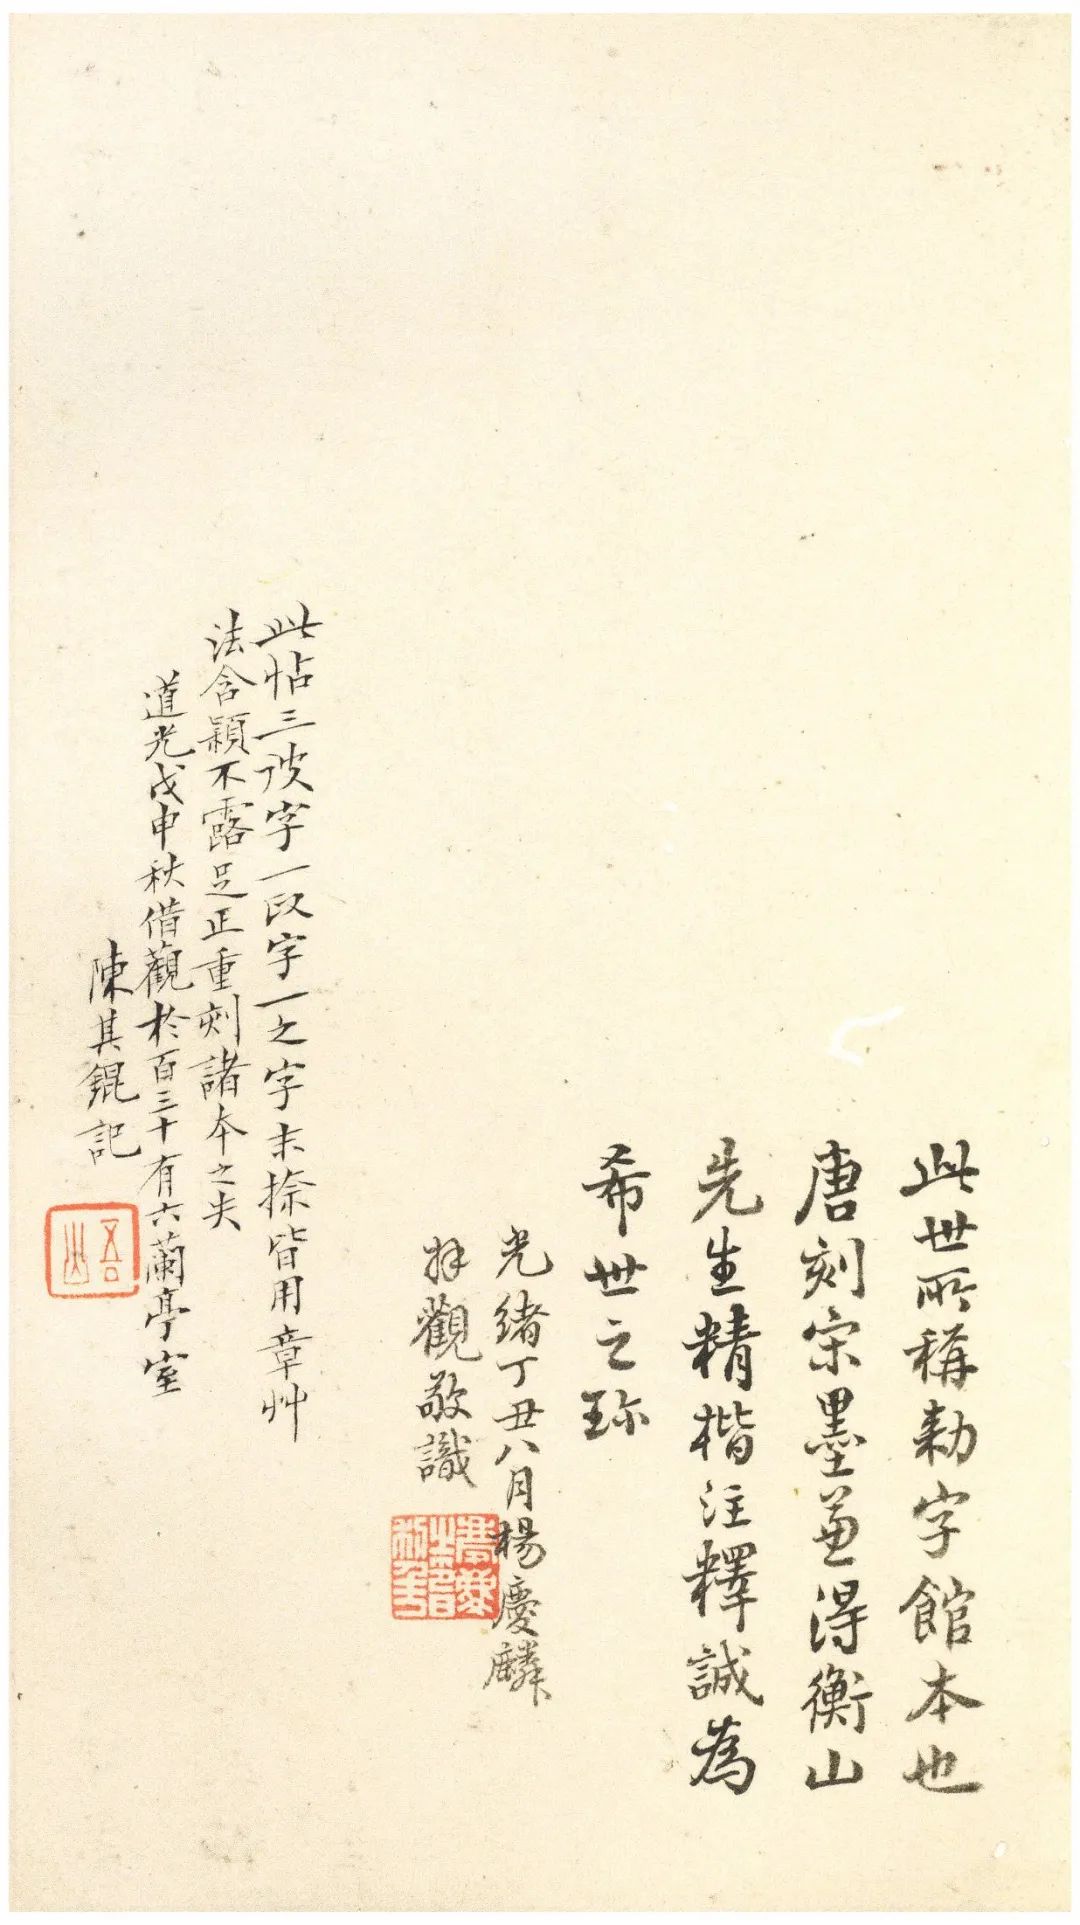 此世所稱勅字館本也
唐刻宋墨兼得衡山
先生精楷注釋誠為
希世之珎
光緒丁丑八月楊慶麟
拜觀敬識
此帖三波字一政字一之字末捺皆用章艸
法含穎不露足正重刻諸本之失
道光戊申秋借觀於百三十有六蘭亭室
陳其錕記
吾山